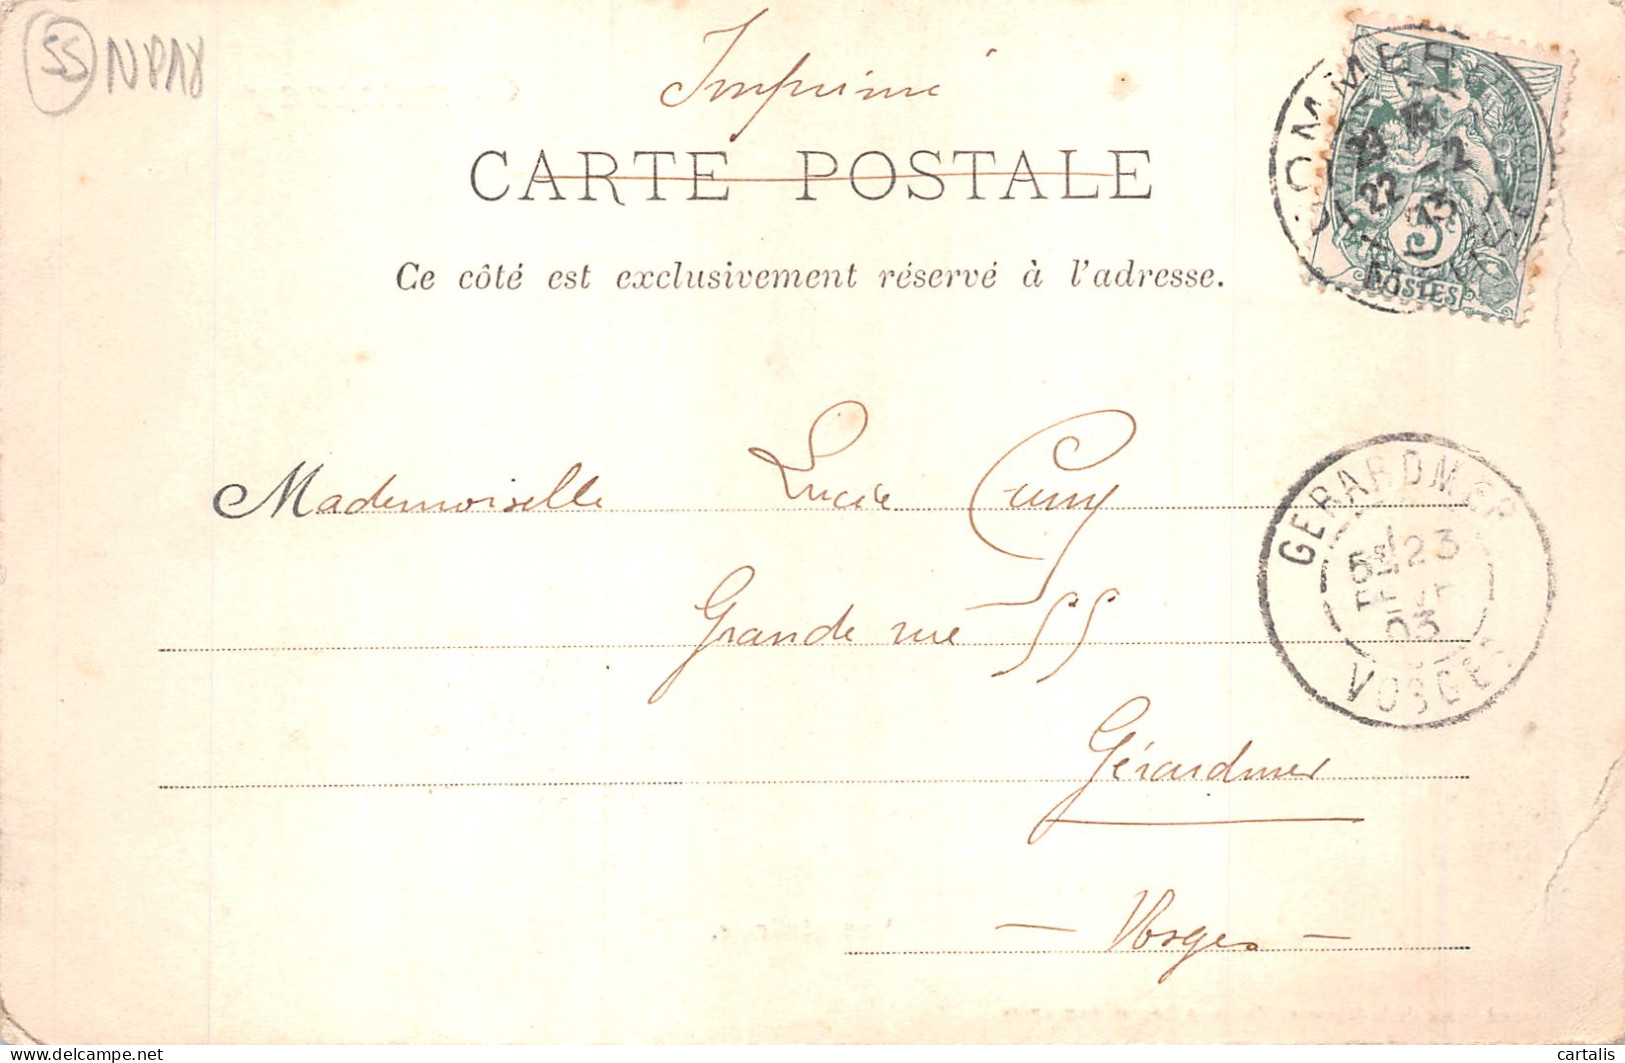 55 NPA18
Imprimé
CARTE POSTALE
Ce côté est exclusivement réservé à l'adresse.
COMMERCY
22 -2
03
5c
POSTES
Mademoiselle Lucie Cuny
Grande rue 55
Gérardmer
— Vosges —
GERARDMER
5E 23
03
VOSGES
delcampe.net
cartalis